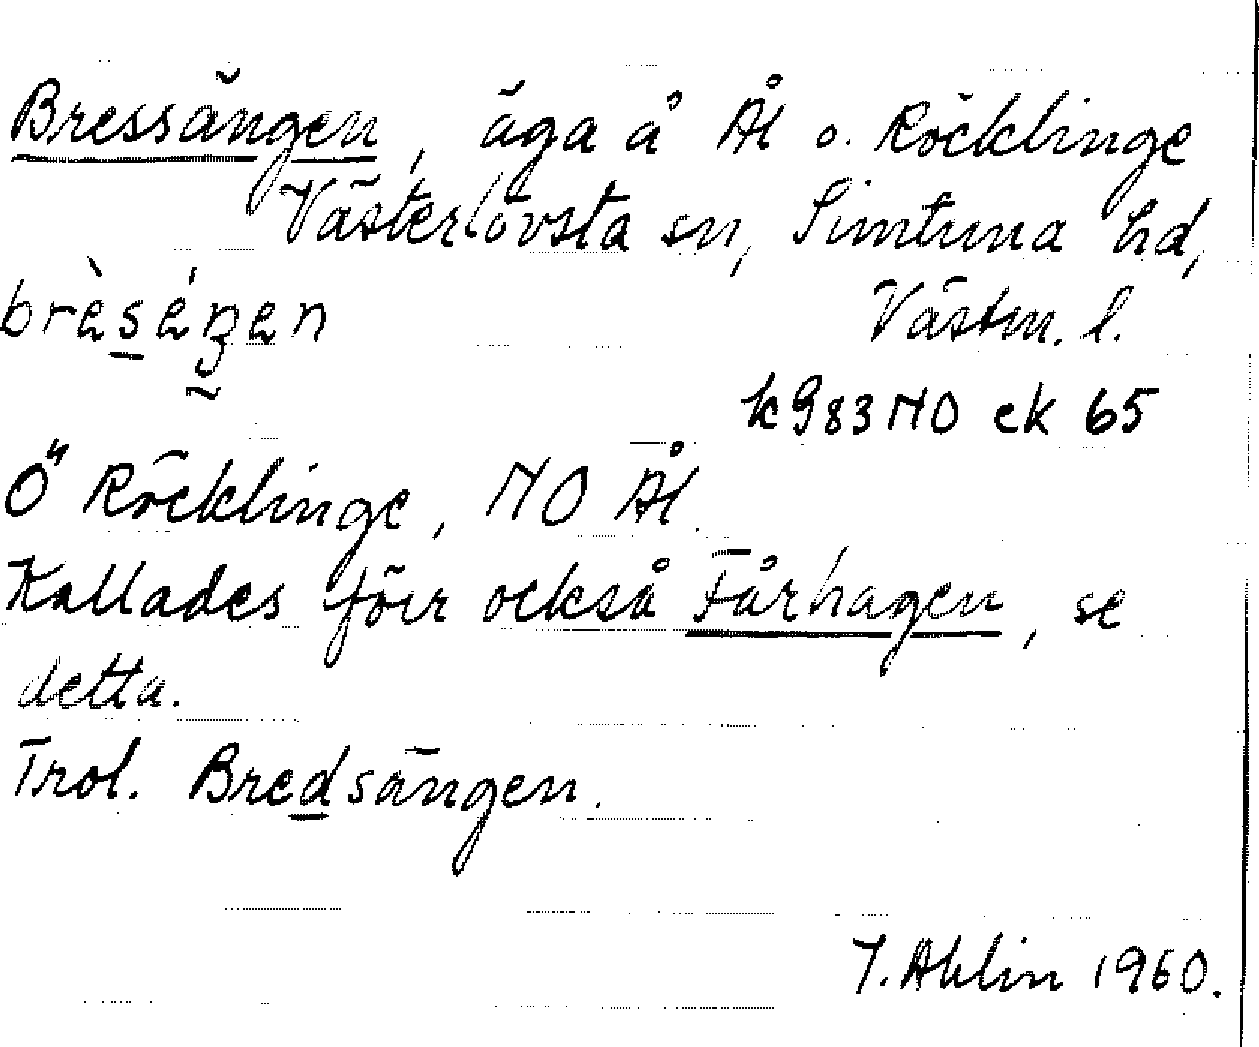 Bressängen, äga å Ål o. Röcklinge
Västerlövsta sn, Simtuna hd,
brèséŋen
Västm. l.
k983NO ek 65
Ö Röcklinge, NO Ål.
Kallades förr också Fårhagen, se
detta.
Trol. Bredsängen.
T. Ahlin 1960.